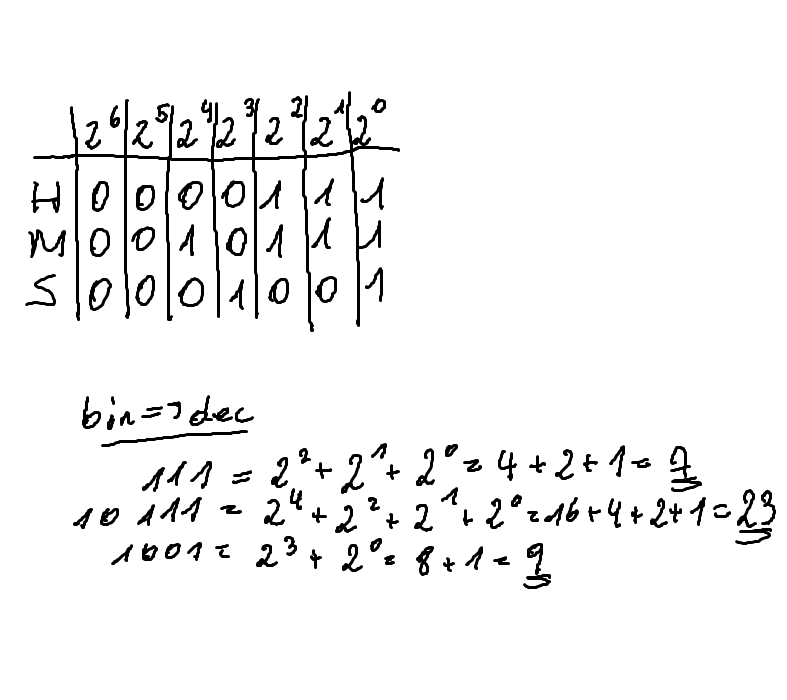 2⁶ 2⁵ 2⁴ 2³ 2² 2¹ 2⁰
H 0 0 0 0 1 1 1
M 0 0 1 0 1 1 1
S 0 0 0 1 0 0 1
bin=>dec
111 = 2² + 2¹ + 2⁰ = 4 + 2 + 1 = 7
10111 = 2⁴ + 2² + 2¹ + 2⁰ = 16 + 4 + 2 + 1 = 23
1001 = 2³ + 2⁰ = 8 + 1 = 9